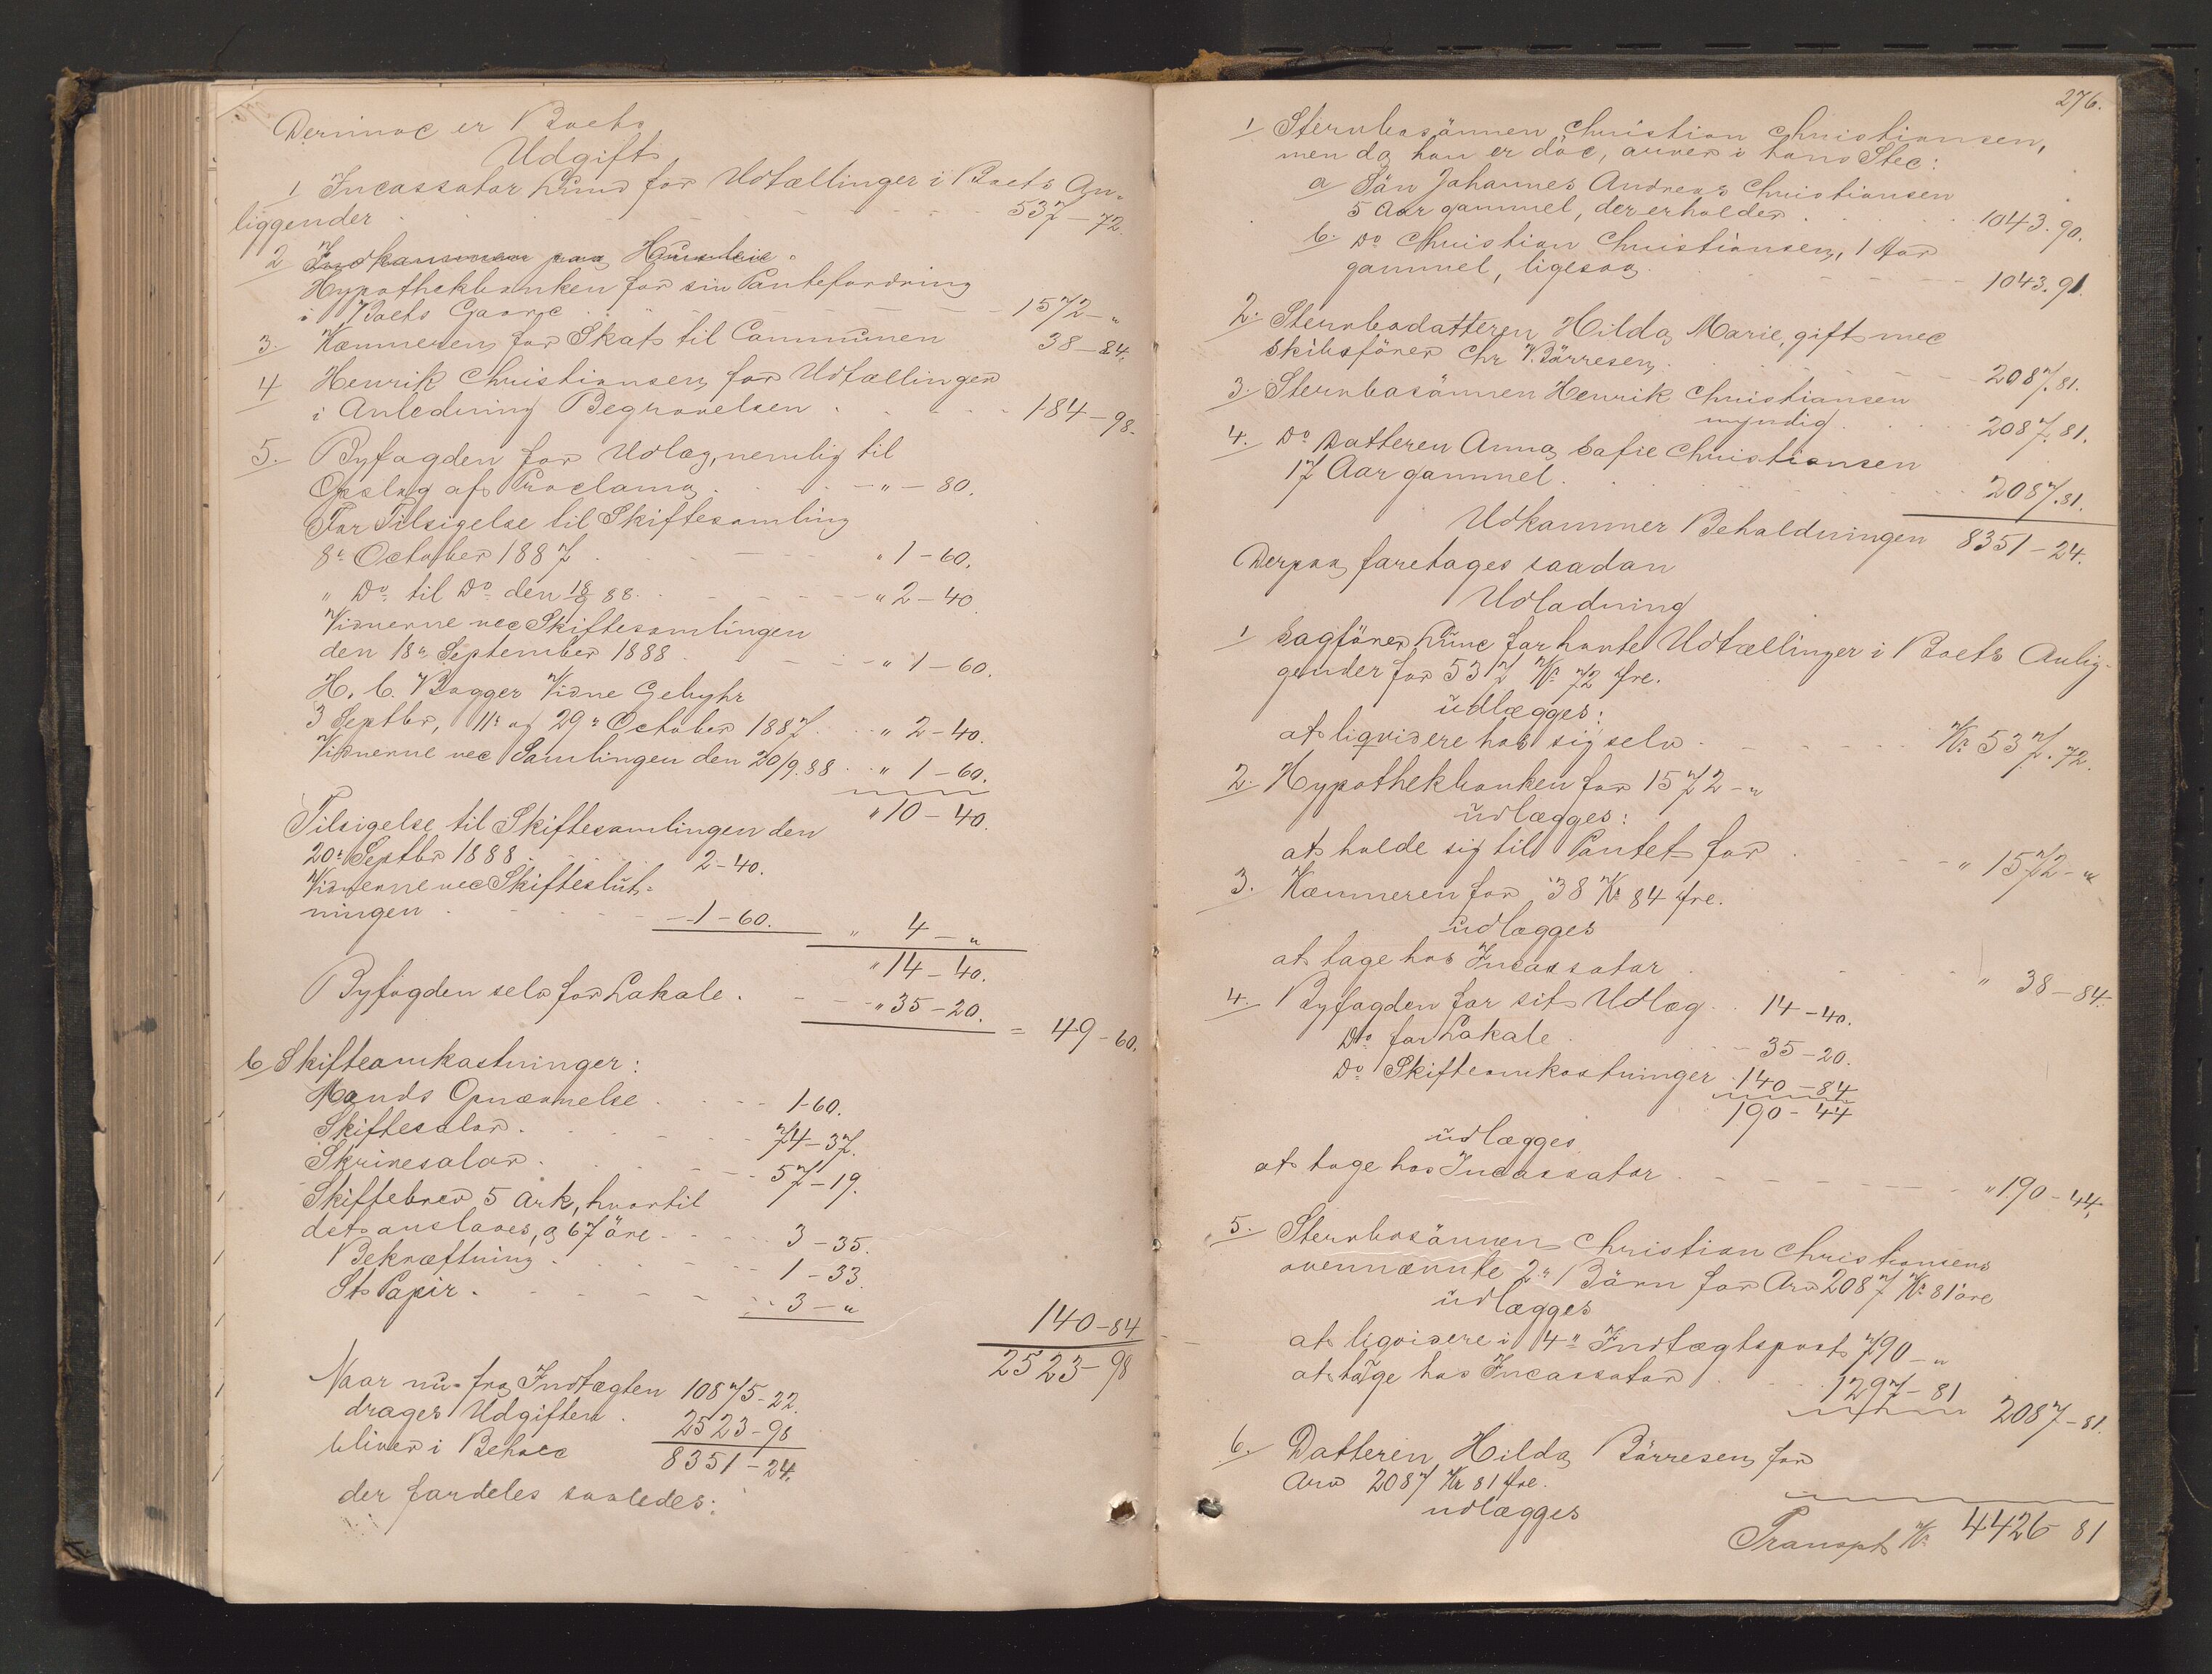 Derimod er Boets
Udgift
1 Incassator Lund for Udtællinger i Boets An-
liggender 537-72.
2 Indkommen paa Huusleie
Hypothekbanken for sin Pantefordring
i Boets Gaard 1572-"
3. Kæmneren for Skat til Communen 38-84.
4 Henrik Christiansen for Udtællinger
i Anledning Begravelsen 184-98.
5. Byfogden for Udlæg, nemlig til
Opslag af Proclama "-80.
For Tilsigelse til Skiftesamling
8de October 1887 " 1-60.
" Do til Do den 18/9 88. " 2-40
Vidnerne ved Skiftesamlingen
den 18de September 1888 " 1-60.
H. C. Bagger Vidne Gebyhr
3 Septbr, 11te og 29de October 1887 " 2-40.
Vidnerne ved Samlingen den 20/9.88 " 1-60.
" 10-40.
Tilsigelse til Skiftesamlingen den
20de Septbr 1888 2-40.
Vidnerne ved Skifteslut-
ningen 1-60. " 4-"
" 14-40.
Byfogden selv for Lokale. " 35-20.
= 49-60.
6 Skifteomkostninger:
Mænds Opnævnelse 1-60.
Skiftesalær. 74-37.
Skrivesalær. 57-19.
Skiftebrev 5 Ark, hvortil
det anslaaes, a 67 öre 3-35.
Bekræftning 1-33.
St Papir. 3-"
140-84
2523-98
Naar nu fra Indtægten 10875-22.
drages Udgiften 2523-98
bliver i Behold 8351-24.
der fordeles saaledes:
276.
1 Sterbosönnen Christian Christiansen,
men da han er död, arver i hans Sted:
a Sön Johannes Andreas Christiansen
5 Aar gammel, der erholder 1043.90.
b. Do Christian Christiansen, 1 Aar
gammel, ligesaa 1043.91.
2. Sterbodatteren Hilda Marie, gift med
Skibsförer Chr Börresen 2087.81.
3. Sterbosönnen Henrik Christiansen
myndig 2087.81.
4. Do Datteren Anna Sofie Christiansen
17 Aar gammel 2087.81.
Udkommer Beholdningen 8351-24.
Derpaa foretages saadan
Udlodning
1 Sagförer Lund for havte Udtællinger i Boets Anlig-
gender for 537 Kr 72 Øre.
udlægges:
at liqvidere hos sig selv Kr 537.72.
2. Hypothekbanken for 1572-"
udlægges:
at holde sig til Pantet for " 1572-"
3. Kæmneren for 38 Kr 84 Øre.
udlægges
at tage hos Incassator " 38-84.
4. Byfogden for sit Udlæg 14-40.
Do for Lokale 35-20.
Do Skifteomkostninger 140-84
190-44
udlægges
at tage hos Incassator " 190-44.
5. Sterbosönnen Christian Christiansens
ovennævnte 2de Börn for Arv 2087 Kr 81 öre
udlægges
at liqvidere i 4de Indtægtspost 790-"
at tage hos Incassator 1297-81
2087-81.
6. Datteren Hilda Börresen for
Arv 2087 Kr 81 Øre.
udlægges
Transpt Kr 4426 81